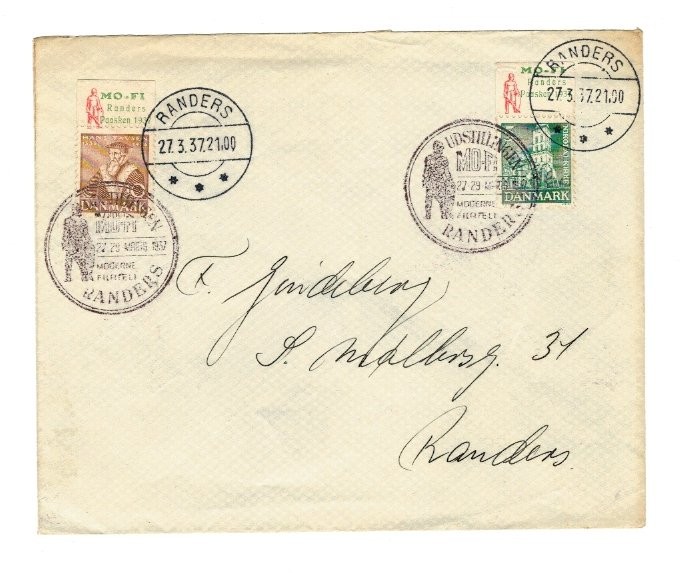 MO-FI
Randers
Paasken 193
RANDERS
27.3.37.21.00
HANS TAVSEN
UDSTILLINGEN
MO-FI
27-29 MARTS 1937
MODERNE
FILATELI
RANDERS
MO-FI
Randers
Paasken 193
RANDERS
27.3.37.21.00
DANMARK
UDSTILLINGEN
MO-FI
27-29 MARTS
MODERNE
FILATELI
RANDERS
F. Gindeberg
S. 31
Randers.